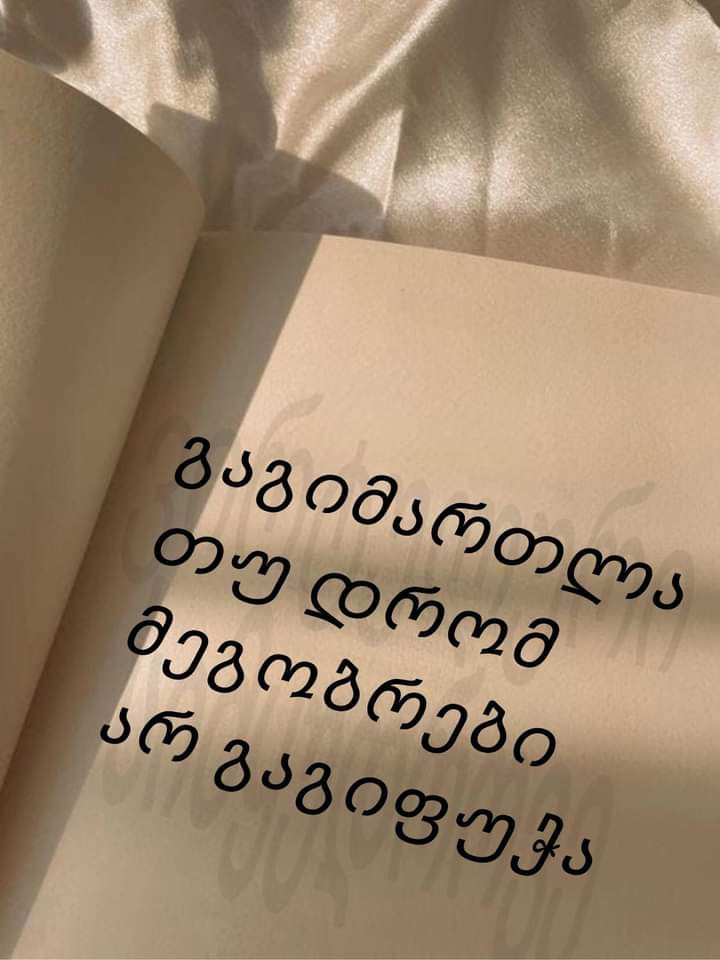 გაგიმართლა
თუ დრომ
მეგობრები
არ გაგიფუჭა